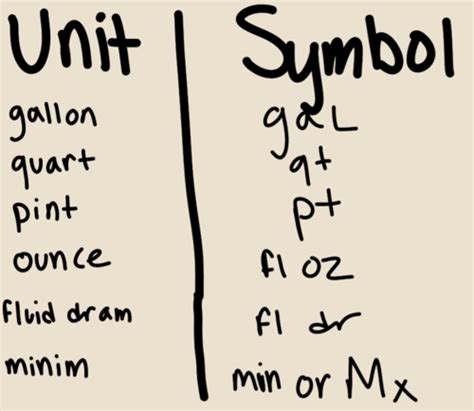 Unit Symbol
gallon gaL
quart qt
pint pt
ounce fl oz
fluid dram fl dr
minim min or Mx